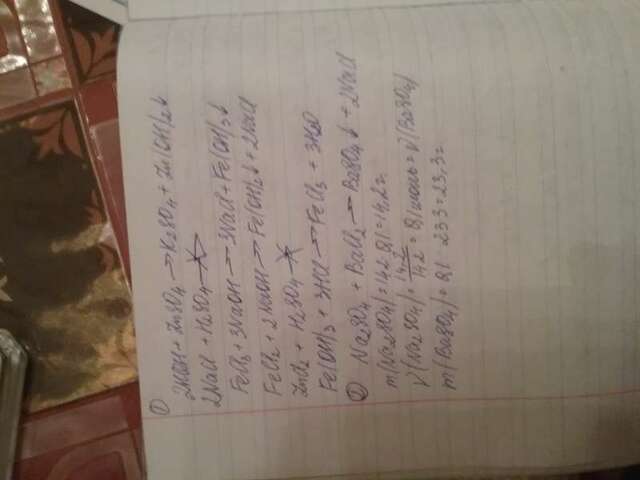 1
2KOH + ZnSO4 → K2SO4 + Zn(OH)2↓
2NaCl + H2SO4 ↛
FeCl3 + 3NaOH → 3NaCl + Fe(OH)3↓
FeCl2 + 2NaOH → Fe(OH)2↓ + 2NaCl
ZnCl2 + H2SO4 ↛
Fe(OH)3 + 3HCl → FeCl3 + 3H2O
2 Na2SO4 + BaCl2 → BaSO4↓ + 2NaCl
m(Na2SO4) = 142 · 0,1 = 14,2 г.
ν(Na2SO4) = 14,2/142 = 0,1 моль = ν(BaSO4)
m(BaSO4) = 0,1 · 233 = 23,3 г